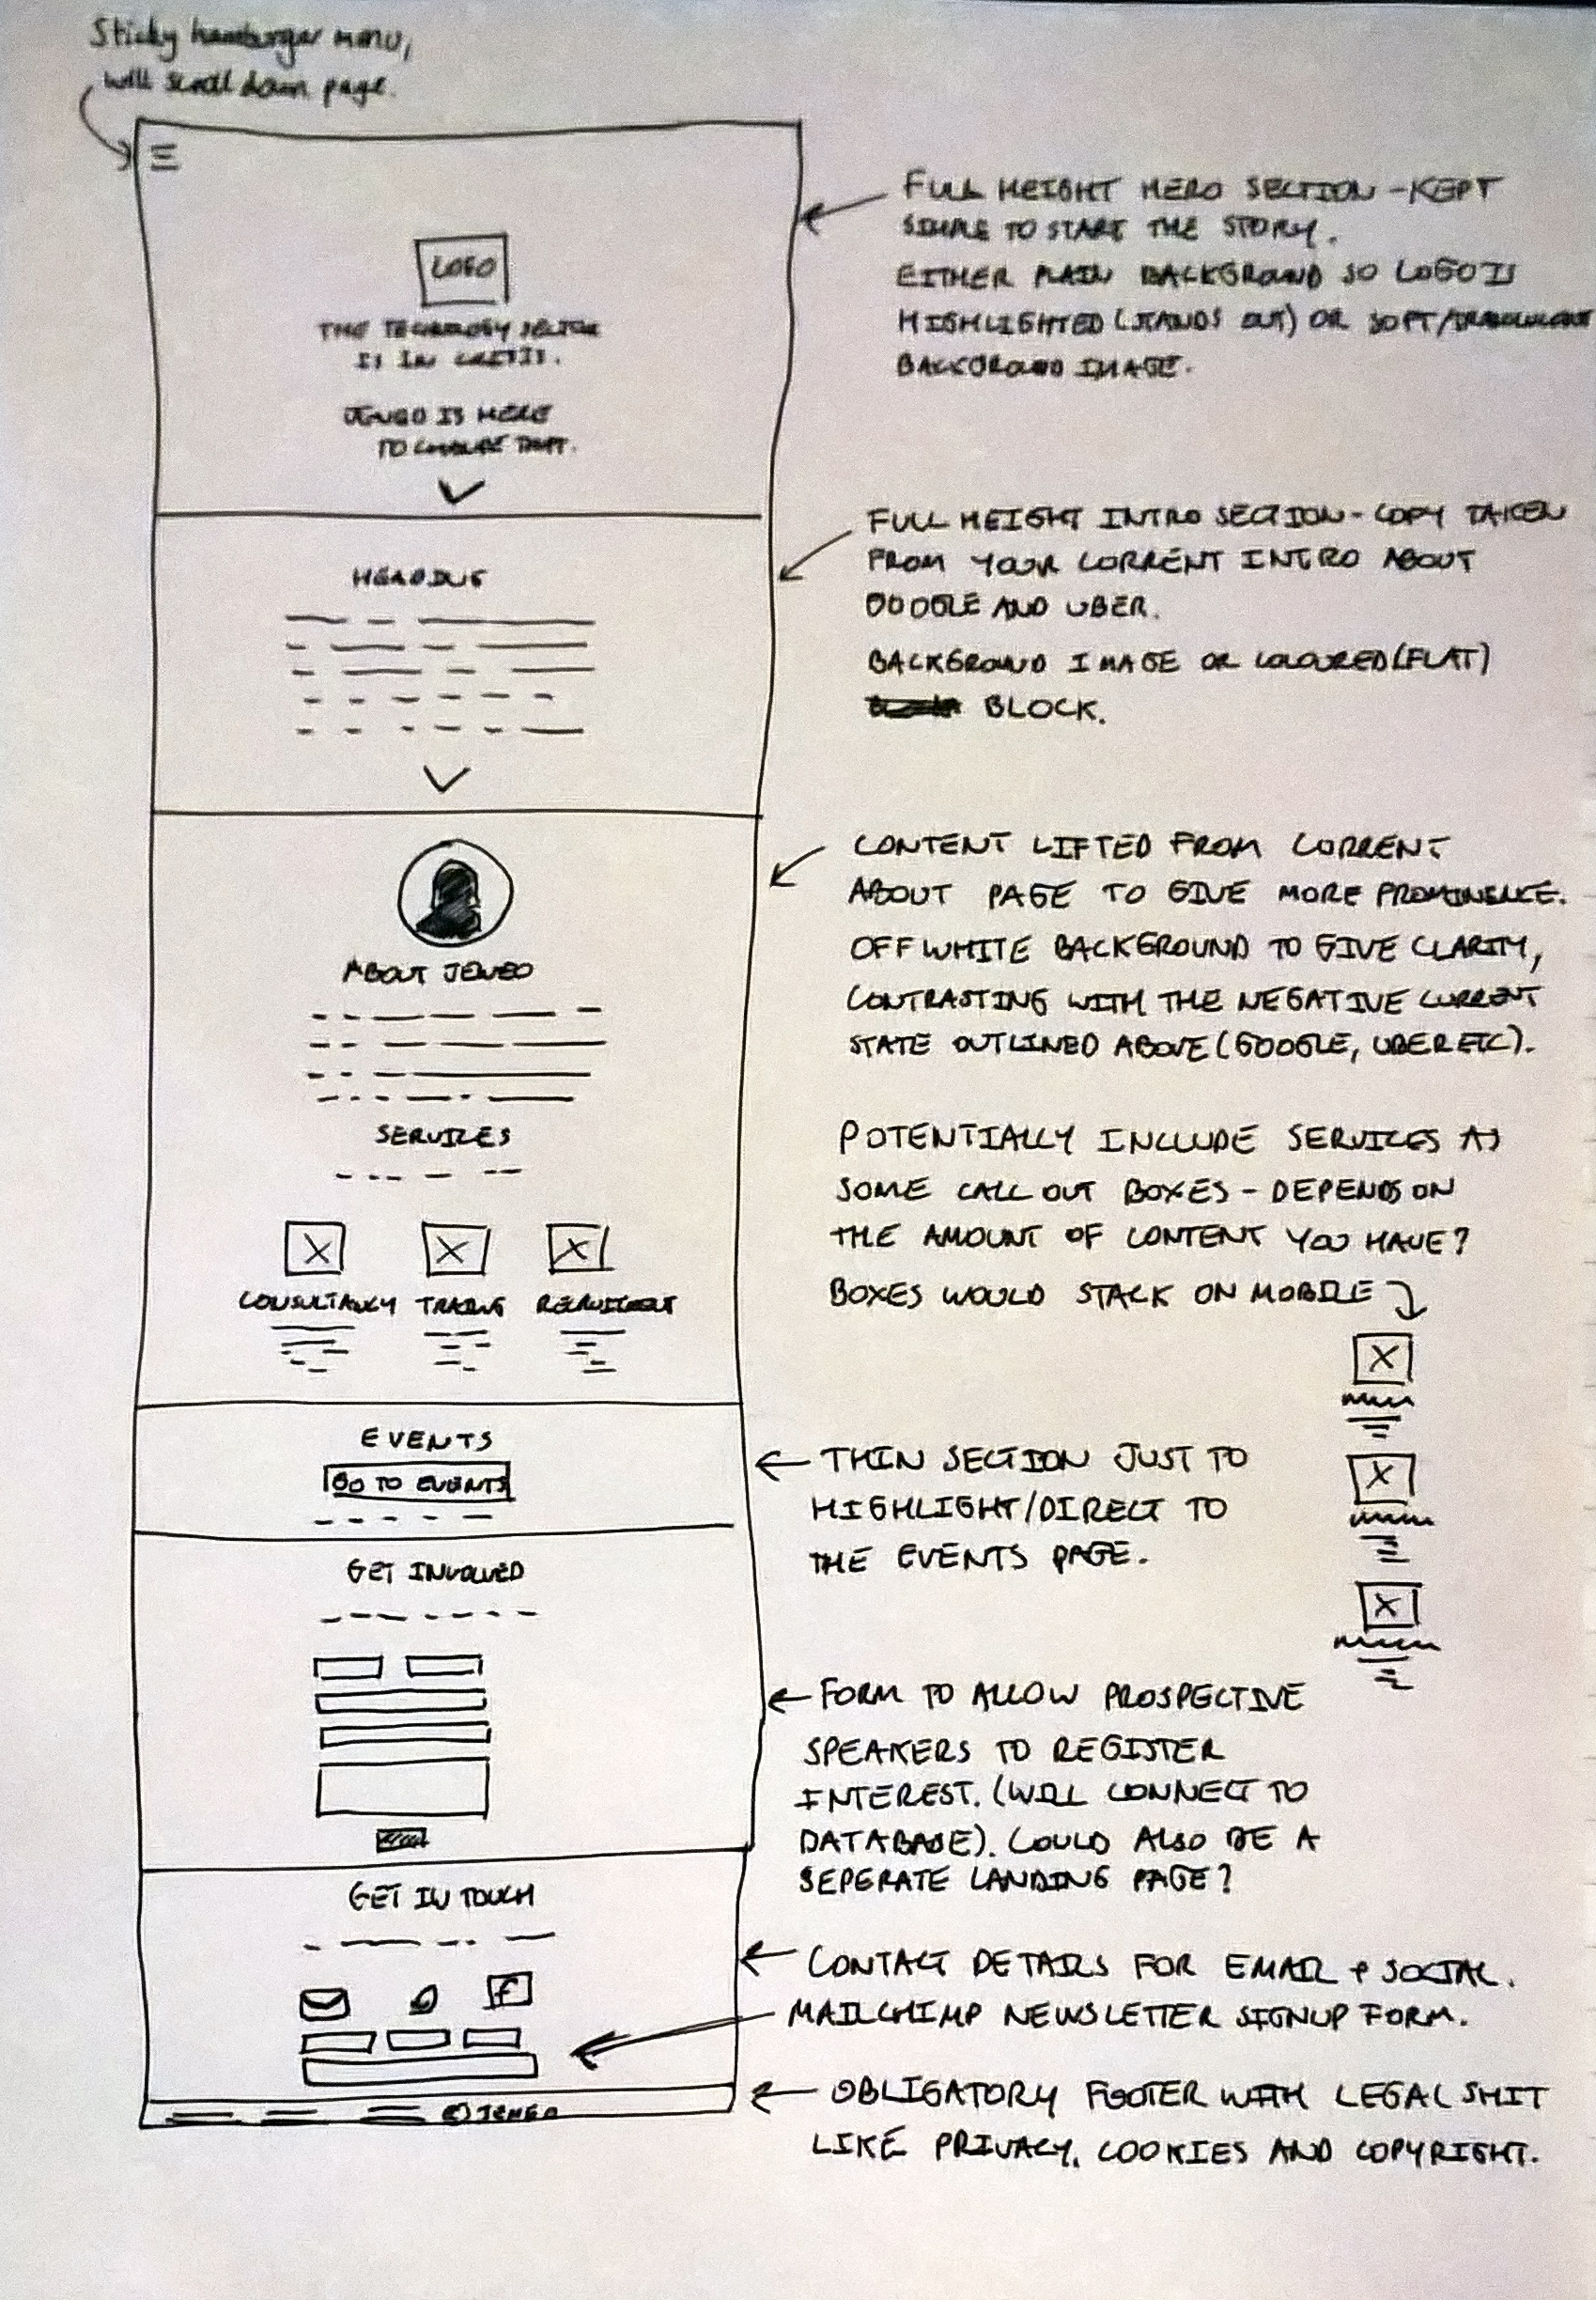 Sticky hamburger menu,
will scroll down page.
LOGO
THE TECHNOLOGY SECTOR
IS IN CRISIS.
JENGO IS HERE
TO CHANGE THAT.
FULL HEIGHT HERO SECTION - KEPT
SIMPLE TO START THE STORY.
EITHER PLAIN BACKGROUND SO LOGO IS
HIGHLIGHTED (STANDS OUT) OR SOFT/
BACKGROUND IMAGE.
HEADING
FULL HEIGHT INTRO SECTION - COPY TAKEN
FROM YOUR CURRENT INTRO ABOUT
GOOGLE AND UBER.
BACKGROUND IMAGE OR COLOURED (FLAT)
BLOCK.
ABOUT JENGO
CONTENT LIFTED FROM CURRENT
ABOUT PAGE TO GIVE MORE PROMINENCE.
OFF WHITE BACKGROUND TO GIVE CLARITY,
CONTRASTING WITH THE NEGATIVE CURRENT
STATE OUTLINED ABOVE (GOOGLE, UBER ETC).
SERVICES
CONSULTANCY TRAINING RECRUITMENT
POTENTIALLY INCLUDE SERVICES AS
SOME CALL OUT BOXES - DEPENDS ON
THE AMOUNT OF CONTENT YOU HAVE?
BOXES WOULD STACK ON MOBILE
EVENTS
GO TO EVENTS
THIN SECTION JUST TO
HIGHLIGHT/DIRECT TO
THE EVENTS PAGE.
GET INVOLVED
FORM TO ALLOW PROSPECTIVE
SPEAKERS TO REGISTER
INTEREST. (WILL CONNECT TO
DATABASE). COULD ALSO BE A
SEPERATE LANDING PAGE?
GET IN TOUCH
f
CONTACT DETAILS FOR EMAIL + SOCIAL.
MAILCHIMP NEWSLETTER SIGNUP FORM.
© JENGO
OBLIGATORY FOOTER WITH LEGAL SHIT
LIKE PRIVACY, COOKIES AND COPYRIGHT.